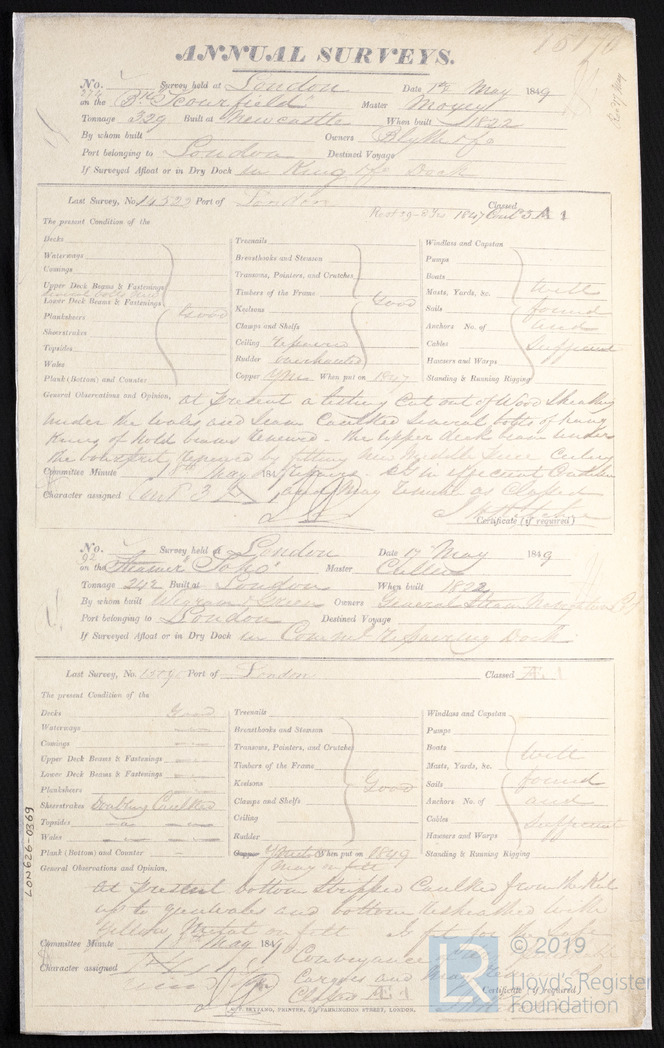 15170
ANNUAL SURVEYS.
No. 274 Survey held at London Date 1st May 1849
on the Bk Scourfield Master
Tonnage 329 Built at Newcastle When built 1822
By whom built Owners Blyth & Co
Port belonging to London Destined Voyage
If Surveyed Afloat or in Dry Dock in King & Co Dock
Last Survey, No. 14522 Port of London Classed
1847 Cont 3 A 1
The present Condition of the
Decks
Waterways
Comings
Upper Deck Beams & Fastenings
Lower Deck Beams & Fastenings
Planksheers
Sheerstrakes
Topsides
Wales
Plank (Bottom) and Counter
Good
Treenails
Breasthooks and Stemson
Transoms, Pointers, and Crutches
Timbers of the Frame
Keelsons
Clamps and Shelfs
Ceiling repaired
Rudder overhauled
Copper YM When put on 1847
Good
Windlass and Capstan
Pumps
Boats
Masts, Yards, &c.
Sails
Anchors No. of
Cables
Hawsers and Warps
Standing & Running Rigging
Well
found
and
sufficient
General Observations and Opinion, at Present a listing cut out of Wood Sheathing
under the wales and seam Caulked several bolts of hang
Knees of hold beams renewed - the upper deck beam under
the bowsprit repaired by fitting new
Committee Minute 18th May 1849 repairs. Is in efficient Condition
Character assigned Cont 3 A 1 and may remain as Classed
Certificate (if required)
No. 92 Survey held at London Date 17 May 1849
on the Steamer "Soho" Master
Tonnage 242 Built at London When built 1822
By whom built Wigram & Green Owners General Steam Navigation Co
Port belonging to London Destined Voyage
If Surveyed Afloat or in Dry Dock in Comml Repairing Dock
Last Survey, No. Port of London Classed Æ 1
The present Condition of the
Decks Good
Waterways
Comings
Upper Deck Beams & Fastenings
Lower Deck Beams & Fastenings
Planksheers
Sheerstrakes Caulked
Topsides
Wales
Plank (Bottom) and Counter
Treenails
Breasthooks and Stemson
Transoms, Pointers, and Crutches
Timbers of the Frame
Keelsons
Clamps and Shelfs
Ceiling
Rudder
Copper When put on 1849
May on felt
Good
Windlass and Capstan
Pumps
Boats
Masts, Yards, &c.
Sails
Anchors No. of
Cables
Hawsers and Warps
Standing & Running Rigging
Well
found
and
sufficient
General Observations and Opinion,
At Present bottom stripped Caulked from the Keel
up to gunwales and bottom resheathed with
Yellow Metal on felt Is fit for the safe
Committee Minute 18th May 1849 Conveyance of
Character assigned Æ 1 Cargoes and may remain as
Classed Æ 1
Certificate (if required)
T. SKYARD, PRINTER, 57, FARRINGDON STREET, LONDON.
LON626-0369
LR
© 2019
Lloyd's Register
Foundation